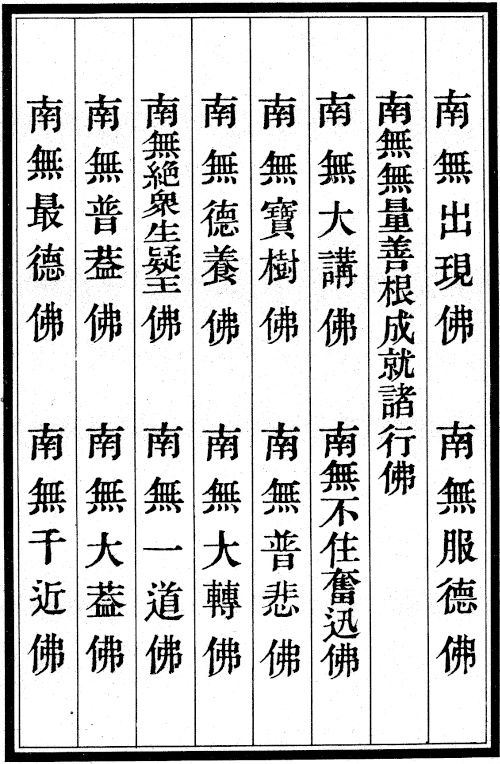 南無出現佛　南無服德佛
南無無量善根成就諸行佛
南無大講佛　南無不住奮迅佛
南無寶樹佛　南無普悲佛
南無德養佛　南無大轉佛
南無絶衆生疑王佛　南無一道佛
南無普葢佛　南無大葢佛
南無最德佛　南無千近佛